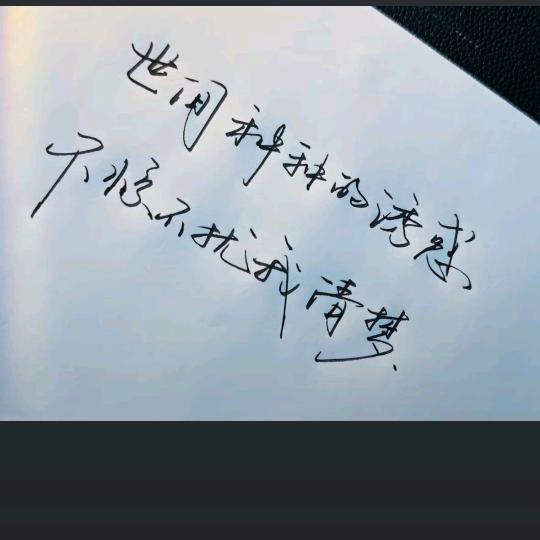 世间种种的诱惑
不惊不扰我清梦